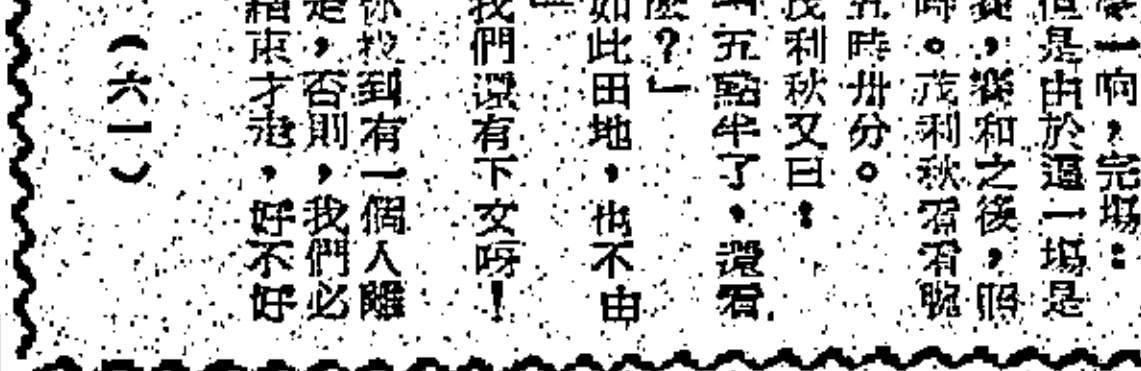 一响，完塲：
但是由於這一塲是
，和之後，
時。茂利秋看看腕
五時卅分。
茂利秋又曰：
五點半了，還看
麼？」
如此田地，也不由
我們還有下文呀！
你找到有一個人離
是，否則，我們必
結束才走，好不好
（六一）